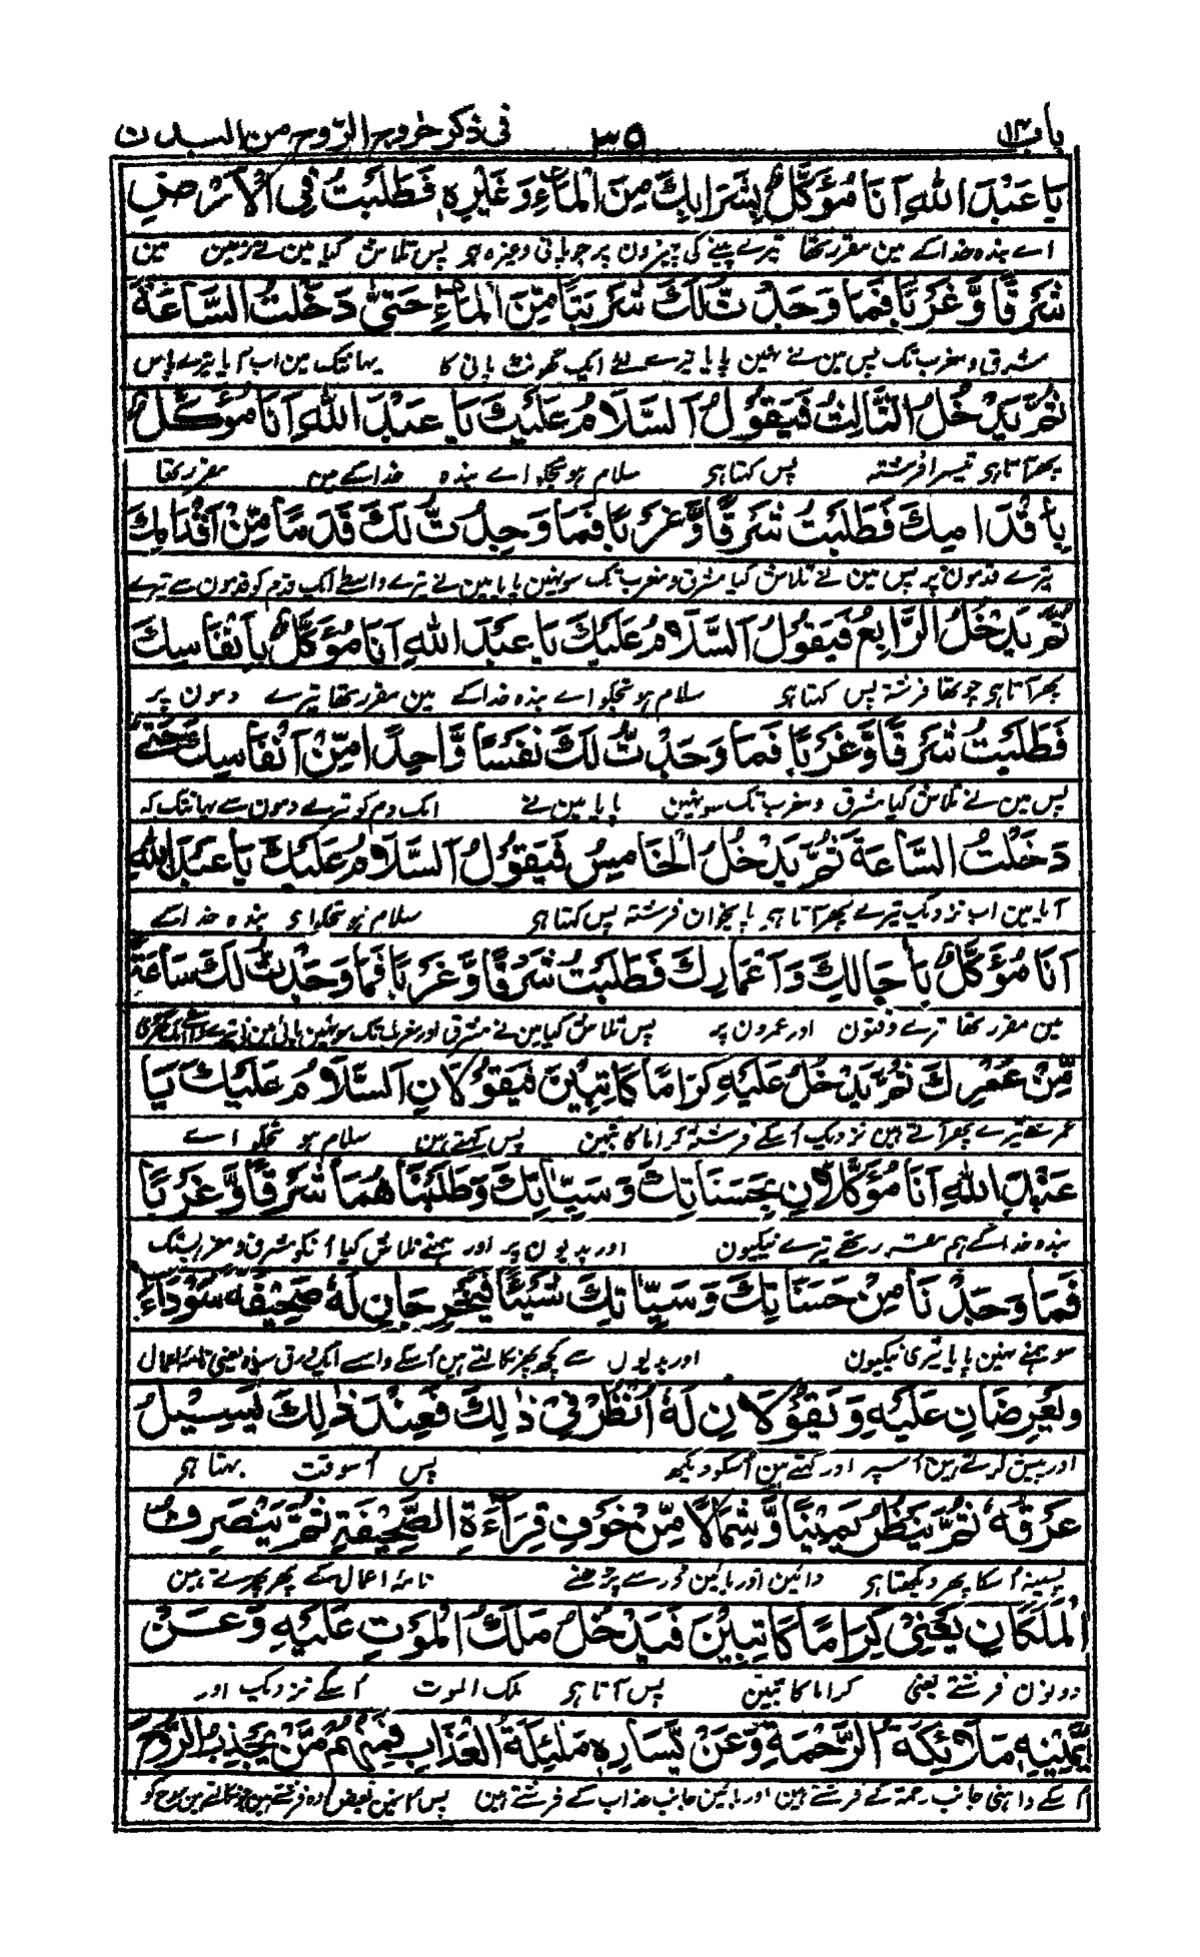 باب۱۳ ۳۵ فی ذکر خروج الرّوح من البدن
یَا عَبْدَ اللّٰہِ اَنَا مُؤَکَّلٌ بِشَرَابِکَ مِنَ الْمَاءِ وَغَیْرِہٖ فَطَلَبْتُ فِی الْاَرْضِ
اے بندہ خدا کے مین مقرر تھا تیرے پینے کی چیزون پر جو پانی وغیرہ ہو پس تلاش کیا مین نے زمین مین
شَرْقًا وَّغَرْبًا فَمَا وَجَدْتُ لَکَ شَرْبَتًا مِّنَ الْمَاءِ حَتّٰی دَخَلْتُ السَّاعَۃَ
مشرق و مغرب تک پس مین نے نہین پایا تیرے لئے ایک گھونٹ پانی کا یہانتک مین اب آیا تیرے پاس
ثُمَّ یَدْخُلُ الثَّالِثُ فَیَقُوْلُ اَلسَّلَامُ عَلَیْکَ یَا عَبْدَ اللّٰہِ اَنَا مُؤَکَّلٌ
پھر آتا ہو تیسرا فرشتہ پس کہتا ہو سلام ہو تجکو اے بندہ خدا کے مین مقرر تھا
بِاَقْدَامِکَ فَطَلَبْتُ شَرْقًا وَّغَرْبًا فَمَا وَجَدْتُّ لَکَ قَدَمًا مِّنْ اَقْدَامِکَ
تیرے قدمون پر پس مین نے تلاش کیا مشرق و مغرب تک سو نہین پایا مین نے تیرے واسطے ایک قدم کو قدمون سے تیرے
ثُمَّ یَدْخُلُ الرَّابِعُ فَیَقُوْلُ اَلسَّلَامُ عَلَیْکَ یَا عَبْدَ اللّٰہِ اَنَا مُؤَکَّلٌ بِاَنْفَاسِکَ
پھر آتا ہو چوتھا فرشتہ پس کہتا ہو سلام ہو تجکو اے بندہ خدا کے مین مقرر تھا تیرے دمون پر
فَطَلَبْتُ شَرْقًا وَّغَرْبًا فَمَا وَجَدْتُّ لَکَ نَفَسًا وَّاحِدًا مِّنْ اَنْفَاسِکَ حَتّٰی
پس مین نے تلاش کیا مشرق و مغرب تک سو نہین پایا مین نے ایک دم کو تیرے دمون سے یہانتک کہ
دَخَلْتُ السَّاعَۃَ ثُمَّ یَدْخُلُ الْخَامِسُ فَیَقُوْلُ اَلسَّلَامُ عَلَیْکَ یَا عَبْدَ اللّٰہِ
آیا مین اب نزدیک تیرے پھر آتا ہو پانچوان فرشتہ پس کہتا ہو سلام ہو تجکو اے بندہ خدا کے
اَنَا مُؤَکَّلٌ بِاٰجَالِکَ وَاَعْمَارِکَ فَطَلَبْتُ شَرْقًا وَّغَرْبًا فَمَا وَجَدْتُّ لَکَ سَاعَۃً
مین مقرر تھا تیرے وقتون اور عمرون پر پس تلاش کیا مین نے مشرق اور مغرب تک سو نہین پائی مین نے تیرے لئے ایک گھڑی
مِّنْ عُمْرِکَ ثُمَّ یَدْخُلُ عَلَیْہِ کِرَامًا کَاتِبِیْنَ فَیَقُوْلَانِ اَلسَّلَامُ عَلَیْکَ یَا
عمر سے تیرے پھر آتے ہین نزدیک اُسکے فرشتۂ کراماً کاتبین پس کہتے ہین سلام ہو تجکو اے
عَبْدَ اللّٰہِ اَنَا مُؤَکَّلَانِ بِحَسَنَاتِکَ وَسَیِّاٰتِکَ وَطَلَبْنَاھُمَا شَرْقًا وَّغَرْبًا
بندہ خدا کے ہم مقرر تھے تیرے نیکیون اور بدیون پر اور ہمنے تلاش کیا اُنکو مشرق و مغرب تک
فَمَا وَجَدْنَا مِنْ حَسَنَاتِکَ وَسَیِّاٰتِکَ شَیْئًا فَیُخْرِجَانِ لَہٗ صَحِیْفَۃً سَوْدَاءَ
سو ہمنے نہین پایا تیری نیکیون اور بدیوں سے کچھ پھر نکالتے ہین اُسکے واسطے ایک ورق سیاہ یعنی نامۂ اعمال
وَیُعْرِضَانِ عَلَیْہِ وَیَقُوْلَانِ لَہٗ اُنْظُرْ فِیْ ذٰلِکَ فَعِنْدَ ذٰلِکَ یَسِیْلُ
اور پیش کرتے ہین اُسپر اور کہتے ہین اُسکو دیکھ پس اُسوقت بہتا ہو
عَرَقُہٗ ثُمَّ یَنْظُرُ یَمِیْنًا وَّشِمَالًا مِّنْ خَوْفِ قِرَاءَۃِ الصَّحِیْفَۃِ ثُمَّ یَنْصَرِفُ
پسینہ اُسکا پھر دیکھتا ہو دائین اور بائین ڈر سے پڑھنے نامۂ اعمال کے پھر پھرتے ہین
الْمَلَکَانِ یَعْنِیْ کِرَامًا کَاتِبِیْنَ فَیَدْخُلُ مَلَکُ الْمَوْتِ عَلَیْہِ وَعَنْ
دونون فرشتے یعنی کراماً کاتبین پس آتا ہو ملک الموت اُسکے نزدیک اور
یَّمِیْنِہٖ مَلَائِکَۃُ الرَّحْمَۃِ وَعَنْ یَّسَارِہٖ مَلٰئِکَۃُ الْعَذَابِ فَمِنْھُمْ مَّنْ یَّجْذِبُ الرُّوْحَ
اُسکے داہنی جانب رحمۃ کے فرشتے ہین اور بائین جانب عذاب کے فرشتے ہین پس اُنمین بعض وہ فرشتے ہین جو نکالتے ہین روح کو